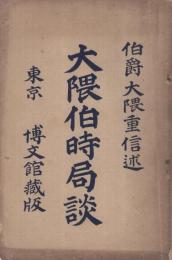 伯爵大隈重信述
大隈伯時局談
東京 博文館藏版